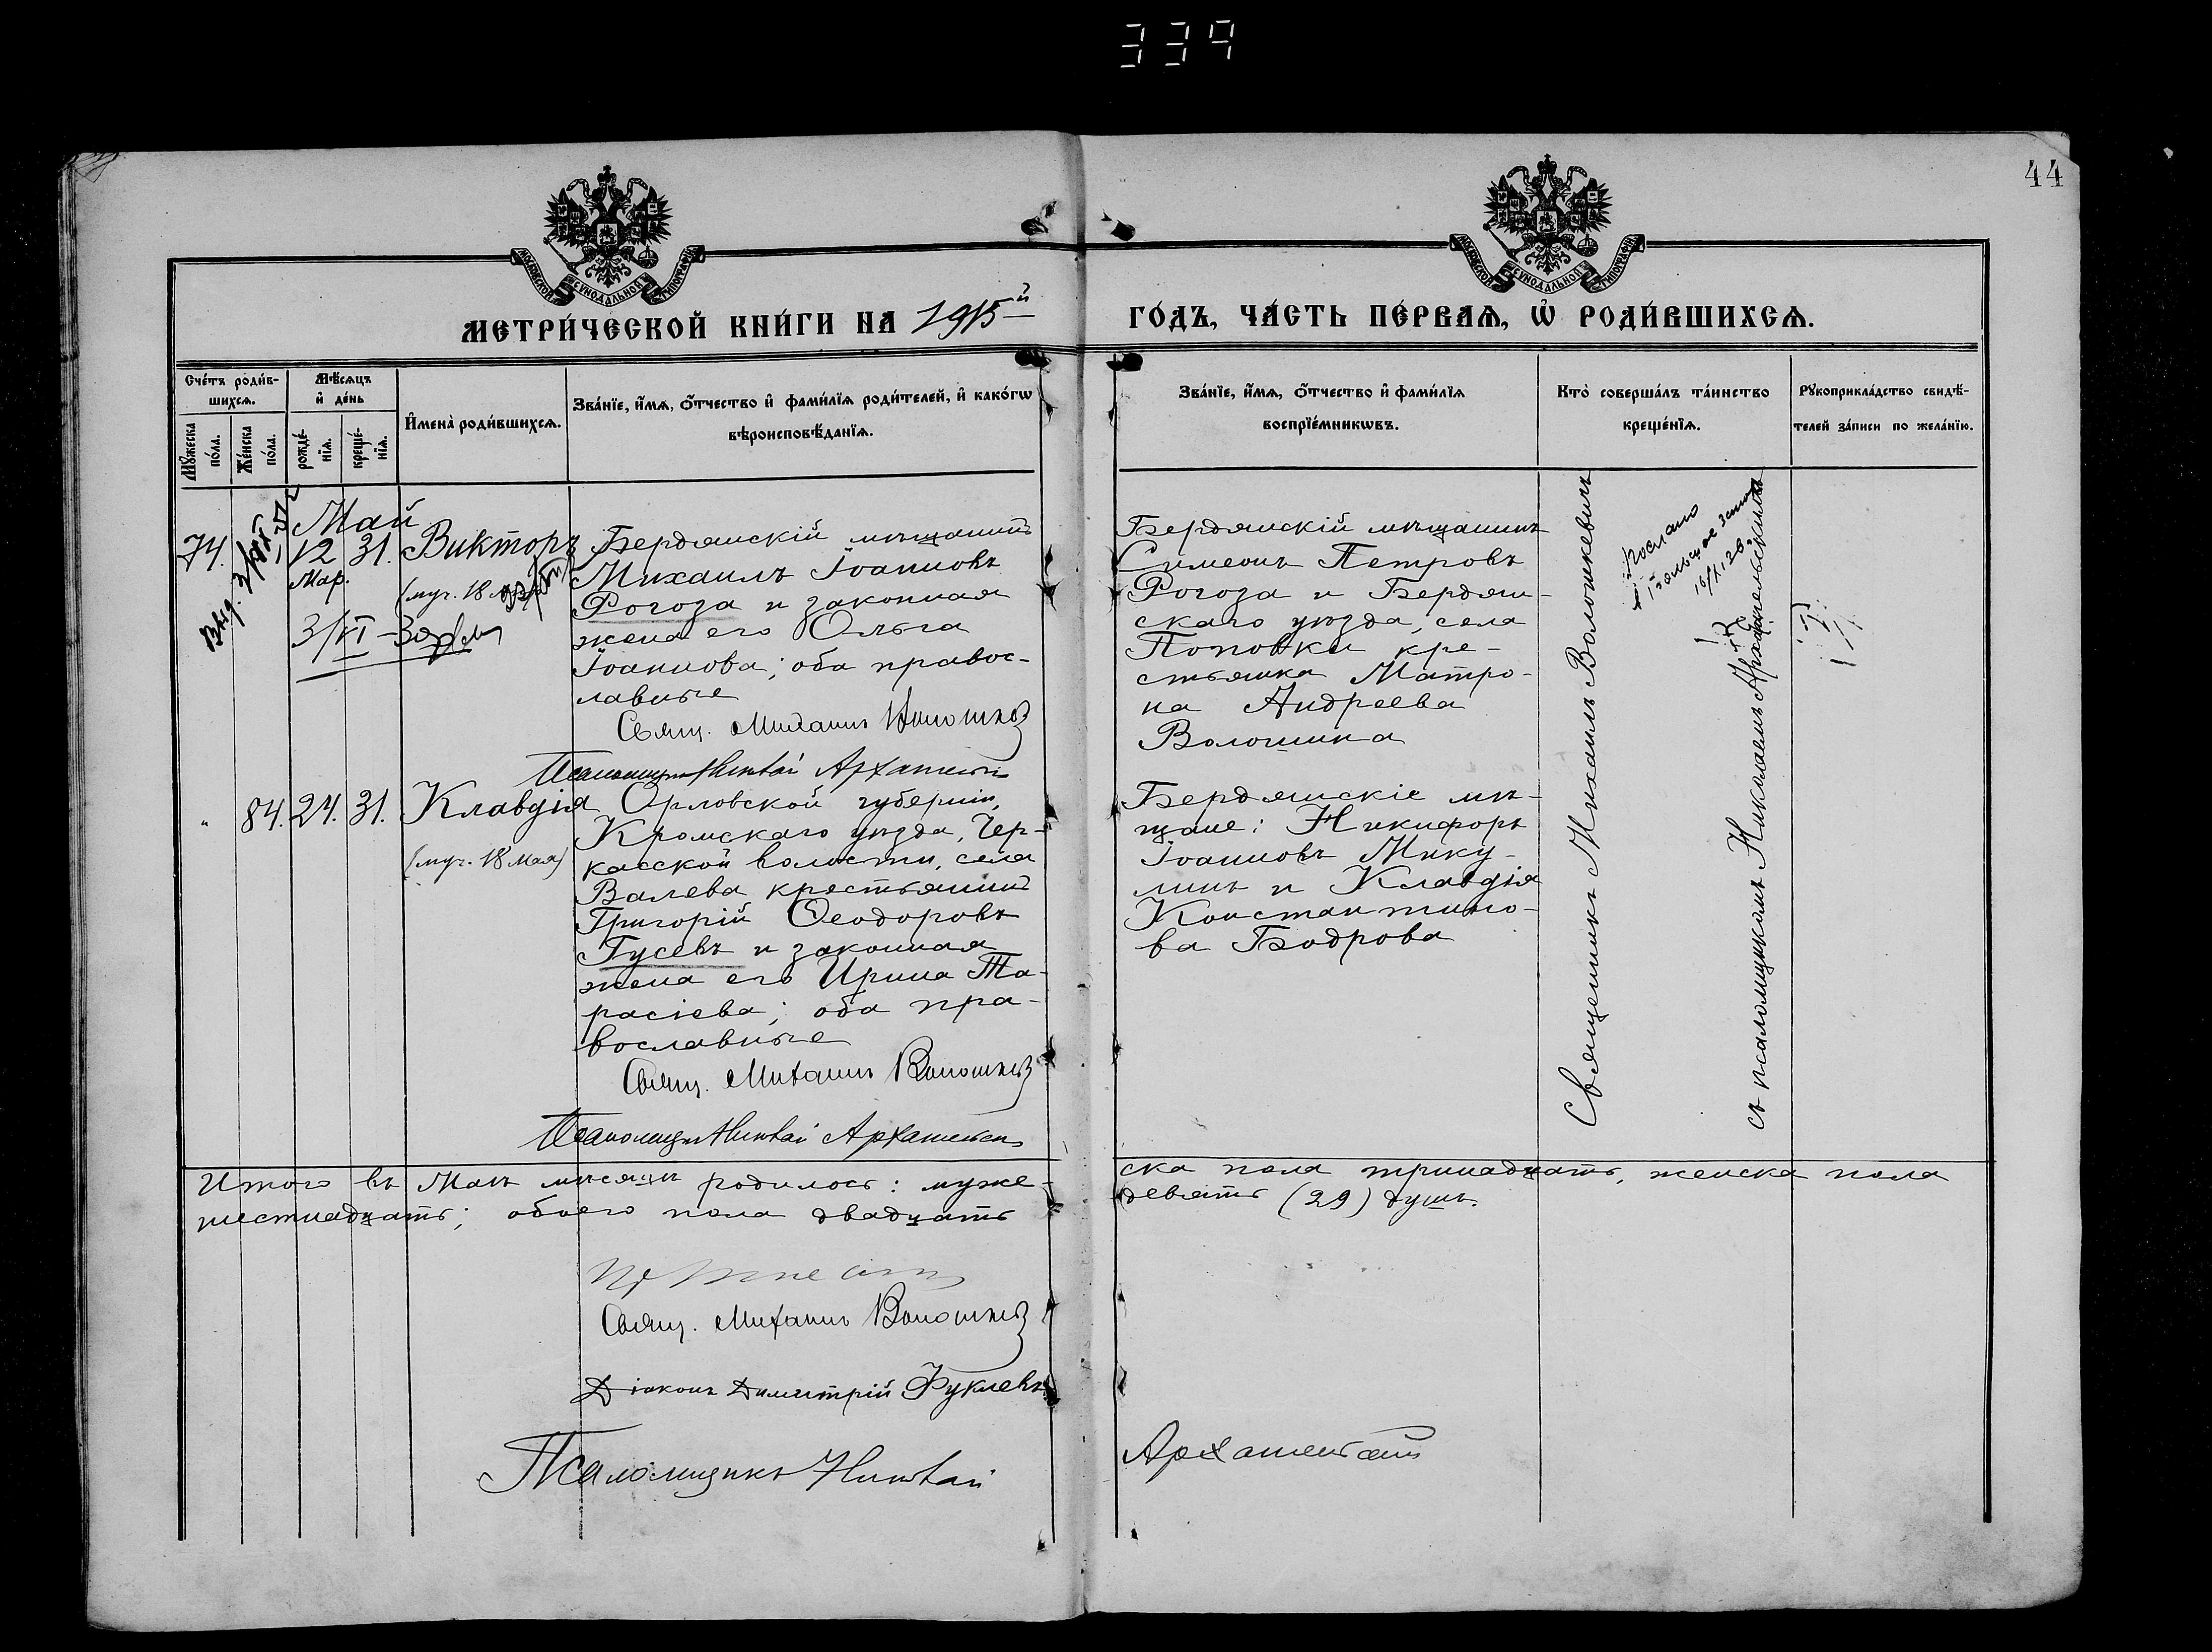 339
44
МОСКОВСКОЙ СУНОДАЛЬНОЙ ТИПОГРАФІИ
МОСКОВСКОЙ СУНОДАЛЬНОЙ ТИПОГРАФІИ
МЕТРИ́ЧЕСКОЙ КНИ́ГИ НА 1915й
ГО́ДЪ, ЧА́СТЬ ПЕ́РВАѦ, Ѡ҆ РОДИ́ВШИХСѦ.
Сче́тъ роди́в-
шихсѧ.
Мѣ́сѧцъ
и҆ де́нь
Мꙋ́жеска
по́ла.
Же́нска
по́ла.
рожде́-
нїѧ.
креще́-
нїѧ.
И҆мена̀ роди́вшихсѧ.
Зва́нїе, и҆́мѧ, о҆́тчество и҆ фами́лїѧ роди́телей, и҆ како́гѡ
вѣроисповѣ́данїѧ.
Зва́нїе, и҆́мѧ, о҆́тчество и҆ фами́лїѧ
воспрїе́мникѡвъ.
Кто̀ соверша́лъ та́инство
креще́нїѧ.
Рꙋкоприкла́дство свидѣ́-
телей за́писи по жела́нїю.
Май
74.
12
31.
Викторъ
Мар.
(муч. 18
3/VI
Выд.
Бердянскій мѣщанинъ
Михаилъ Іоанновъ
Рогоза и законная
жена его Ольга
Іоаннова; оба правос-
лавные
Свящ. Михаилъ Волошкев
Псаломщикъ Николай Архангельск
Бердянскій мѣщанинъ
Симеонъ Петровъ
Рогоза и Бердян-
скаго уѣзда, села
Поповки кре-
стьянка Матро-
на Андреева
Волошина
Священникъ Михаилъ Волошкевичъ
съ псаломщикомъ Николаемъ Архангельскимъ
Послано
"
84.
24.
31.
Клавдія
(муч. 18 Мая)
Орловской губерніи,
Кромскаго уѣзда, Чер-
касской волости, села
Валева крестьянинъ
Григорій Ѳеодоровъ
Гусевъ и законная
жена его Ирина Та-
расіева; оба пра-
вославные
Свящ. Михаилъ Волошкев
Псаломщикъ Николай Архангельск
Бердянскіе мѣ-
щане: Никифоръ
Іоанновъ Мику-
линъ и Клавдія
Константино-
ва Бодрова
Итого въ Маѣ мѣсяцѣ родилось: муже-
ска пола тринадцать, женска пола
шестнадцать; обоего пола двадцать
девять (29) душъ.
Свящ. Михаилъ Волошкев
Діаконъ Димитрій Фуклевъ
Псаломщикъ Николай
Архангельскій